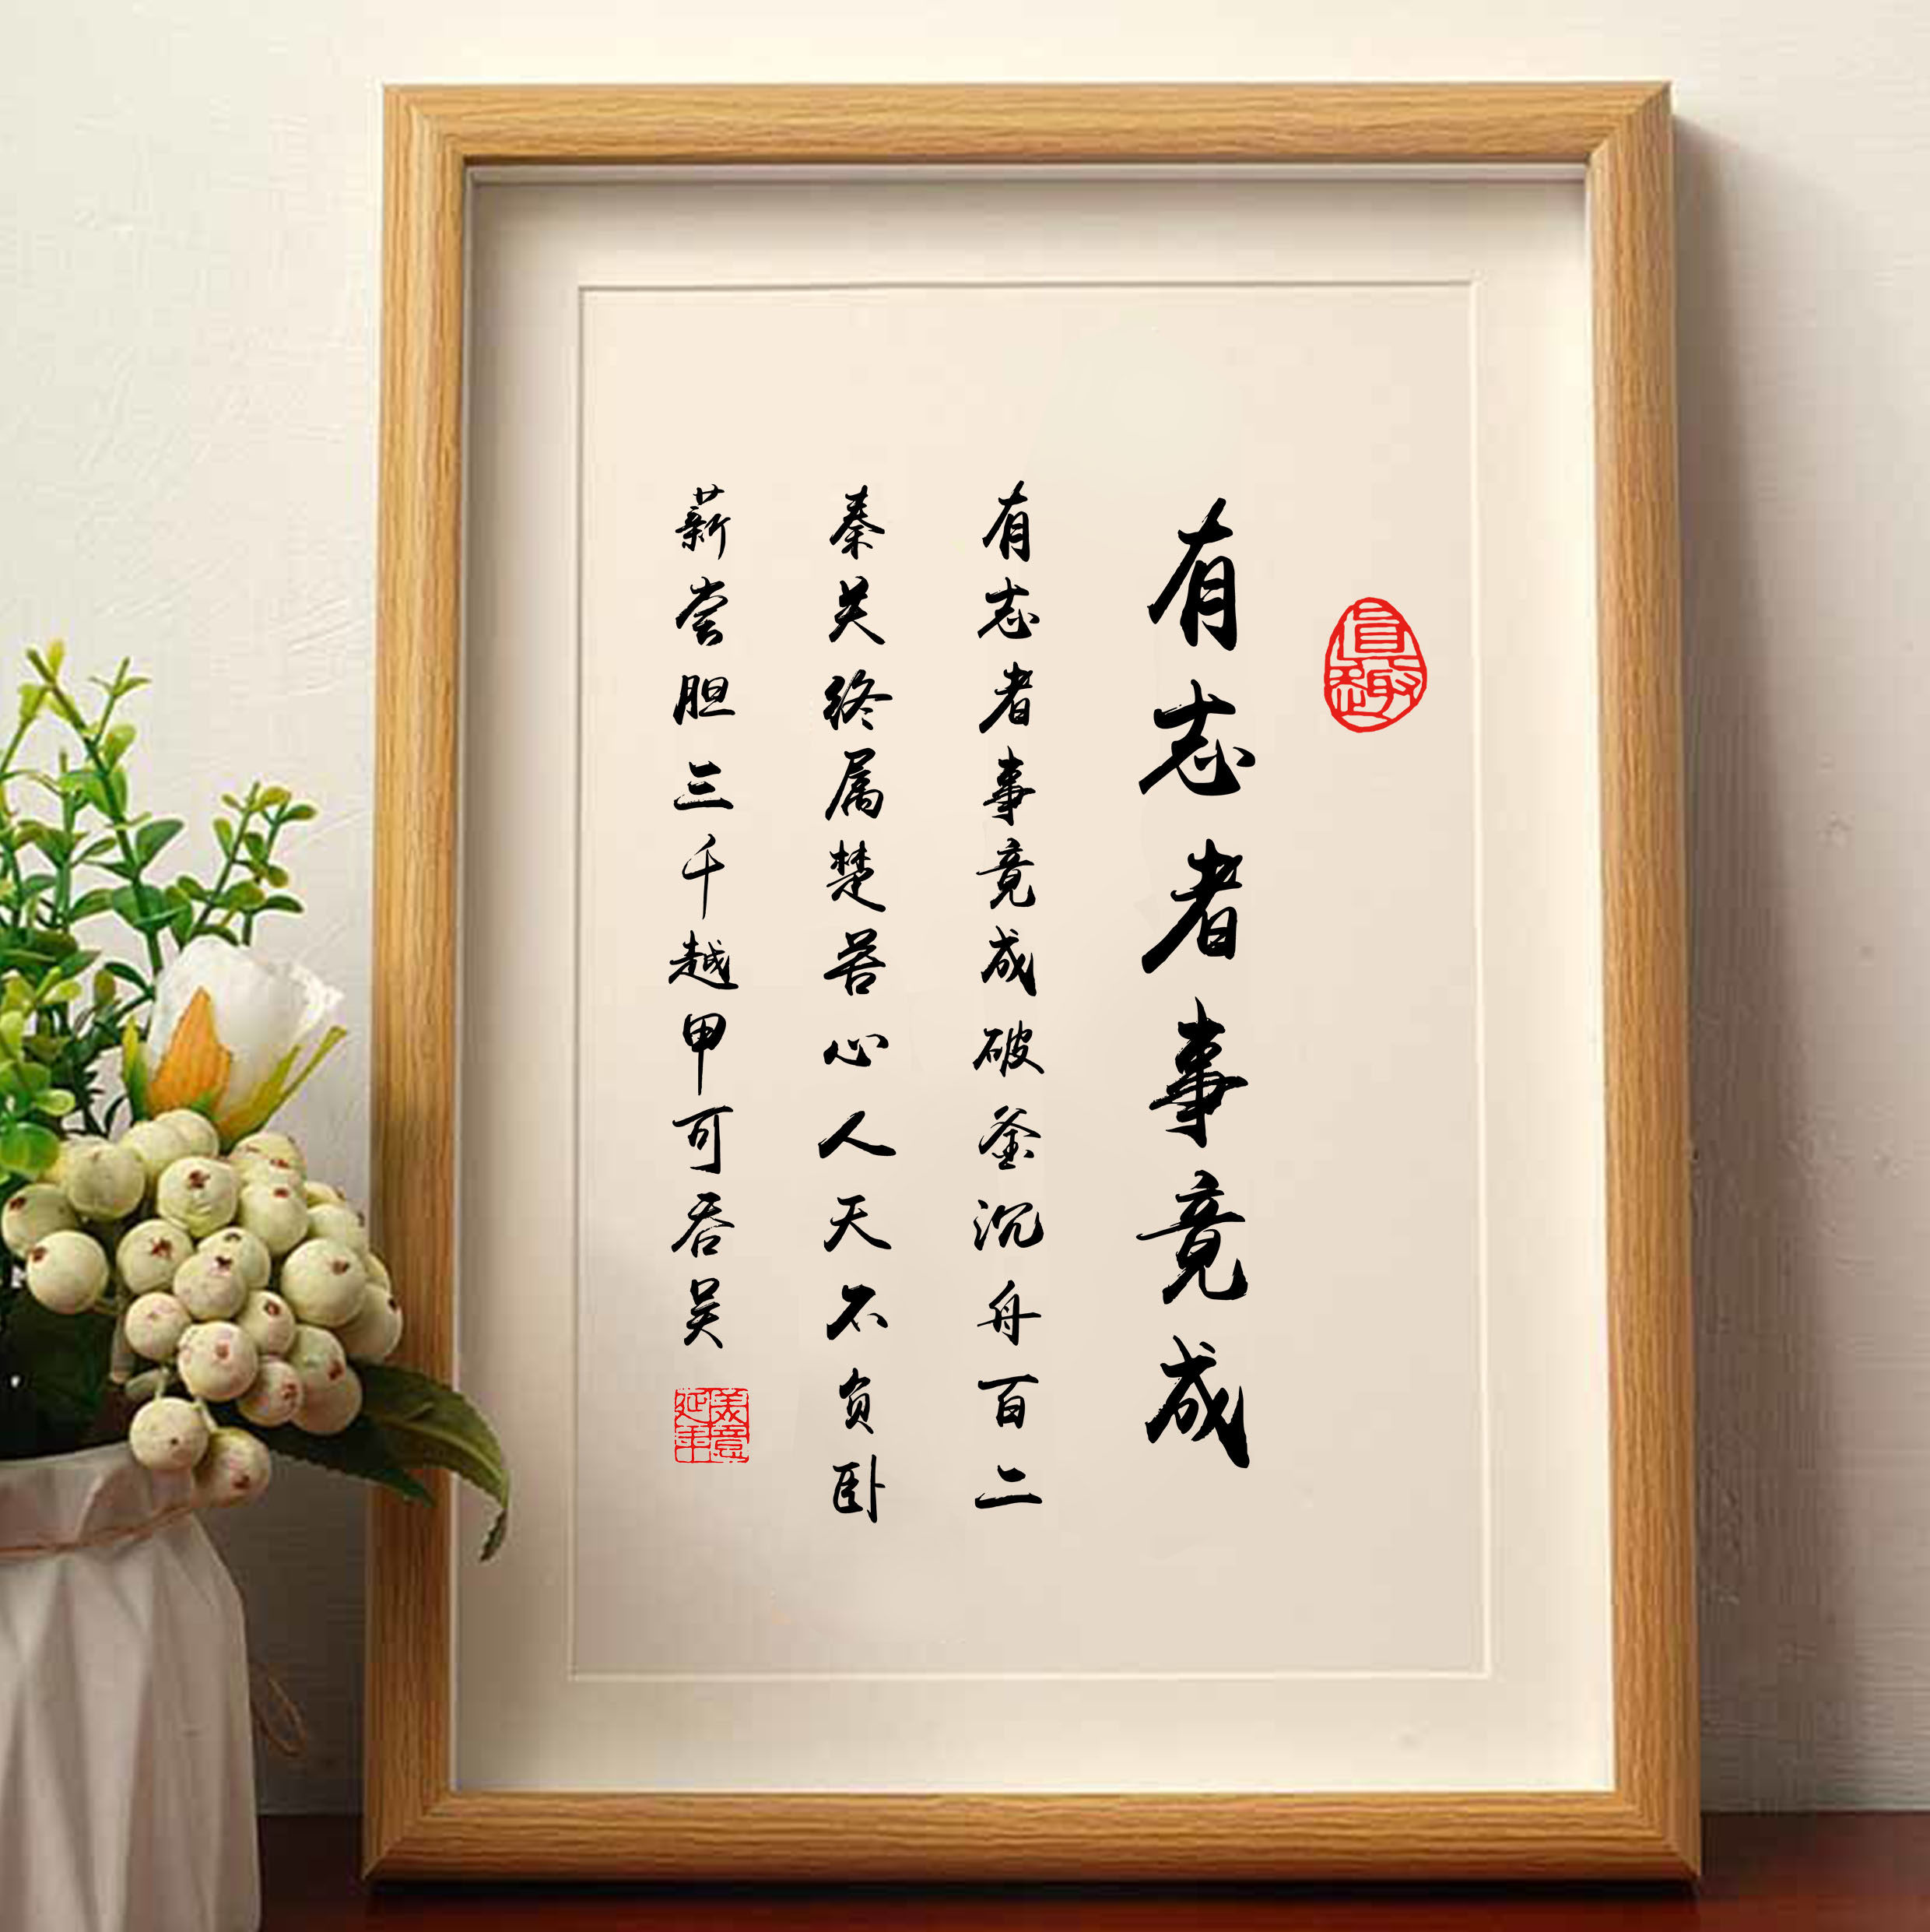 有志者事竟成
有志者事竟成破釜沉舟百二
秦关终属楚苦心人天不负卧
薪尝胆三千越甲可吞吴
美意延年